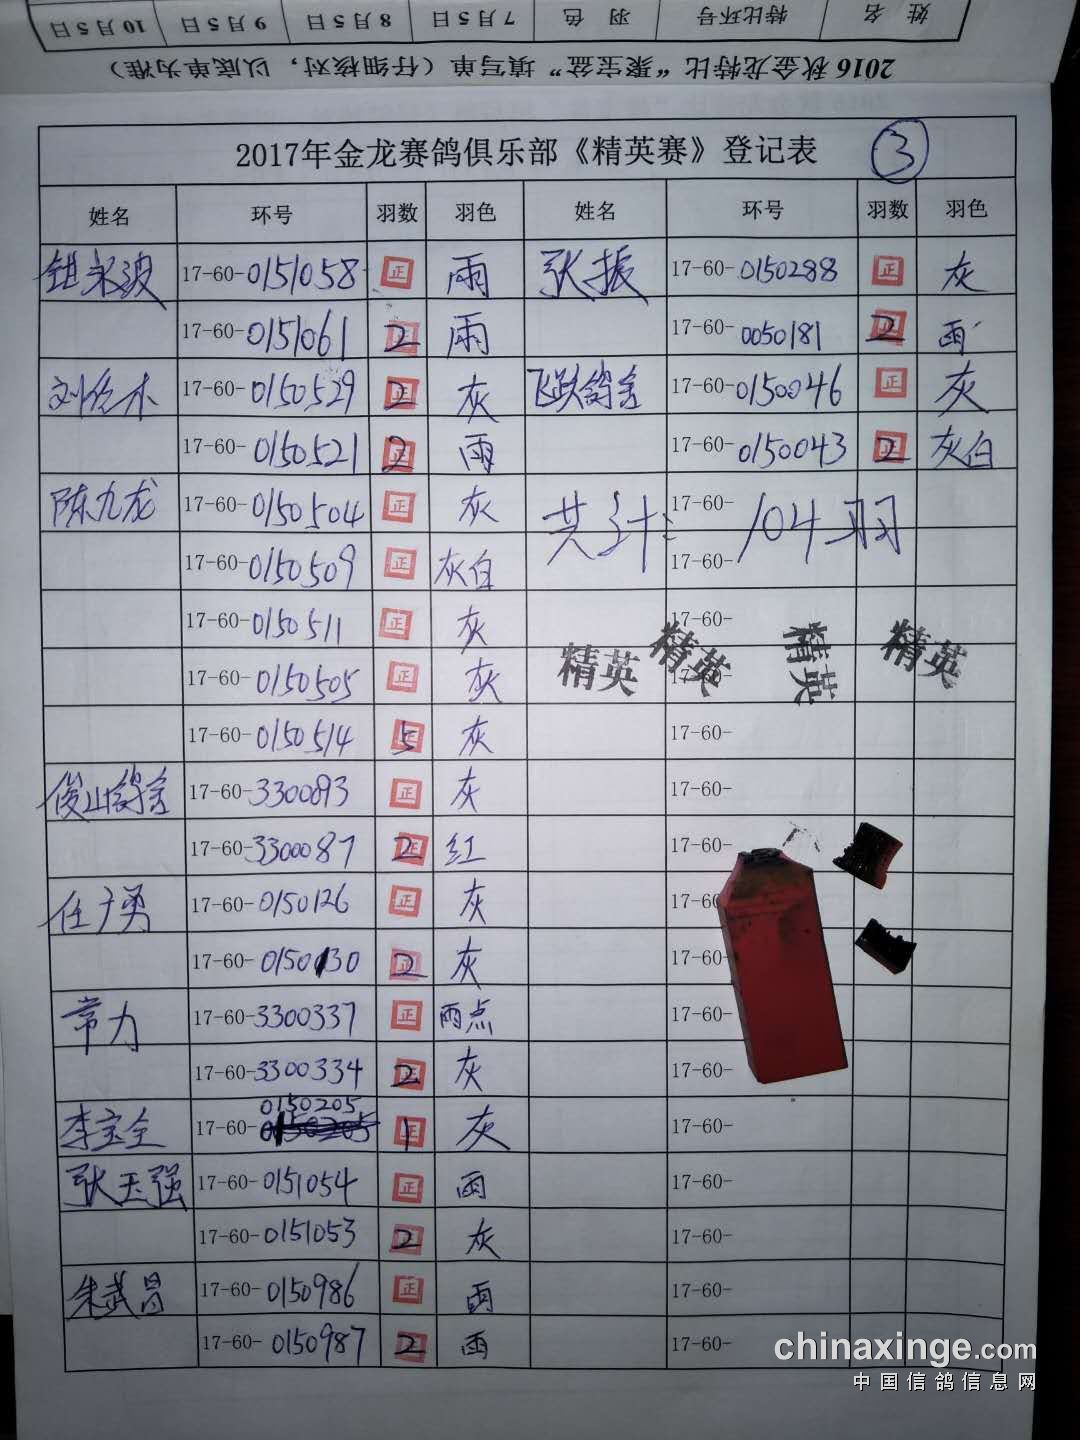 姓 名 特比环号 羽 色 7月5日 8月5日 9月5日 10月5日
2016 秋金龙特比“聚宝盆”填写单（仔细核对，以底单为准）
2017年金龙赛鸽俱乐部《精英赛》登记表 3
姓名 环号 羽数 羽色 姓名 环号 羽数 羽色
永波 17-60-0151058 正 雨 张振 17-60-0150288 正 灰
17-60-0151061 2 雨 17-60-0050181 2 雨
17-60-0150529 2 灰 飞跃鸽舍 17-60-0150046 正 灰
17-60-0150521 2 雨 17-60-0150043 2 灰白
陈九龙 17-60-0150504 正 灰 共计: 17-60- 104羽
17-60-0150509 正 灰白 17-60-
17-60-0150511 正 灰 17-60-
17-60-0150505 正 灰 精英 精英 17-60- 精英 精英
17-60-0150514 5 灰 17-60-
俊山鸽舍 17-60-3300893 正 灰 17-60-
17-60-3300087 2 红 17-60-
任广勇 17-60-0150126 正 灰 17-60-
17-60-0150130 2 灰 17-60-
常力 17-60-3300337 正 雨点 17-60-
17-60-3300334 2 灰 17-60-
李宝全 17-60-0150205 1 灰 17-60-
张玉强 17-60-0151054 正 雨 17-60-
17-60-0151053 2 灰 17-60-
朱武昌 17-60-0150986 正 雨 17-60-
17-60-0150987 2 雨 17-60-
chinaxinge.com
中国信鸽信息网